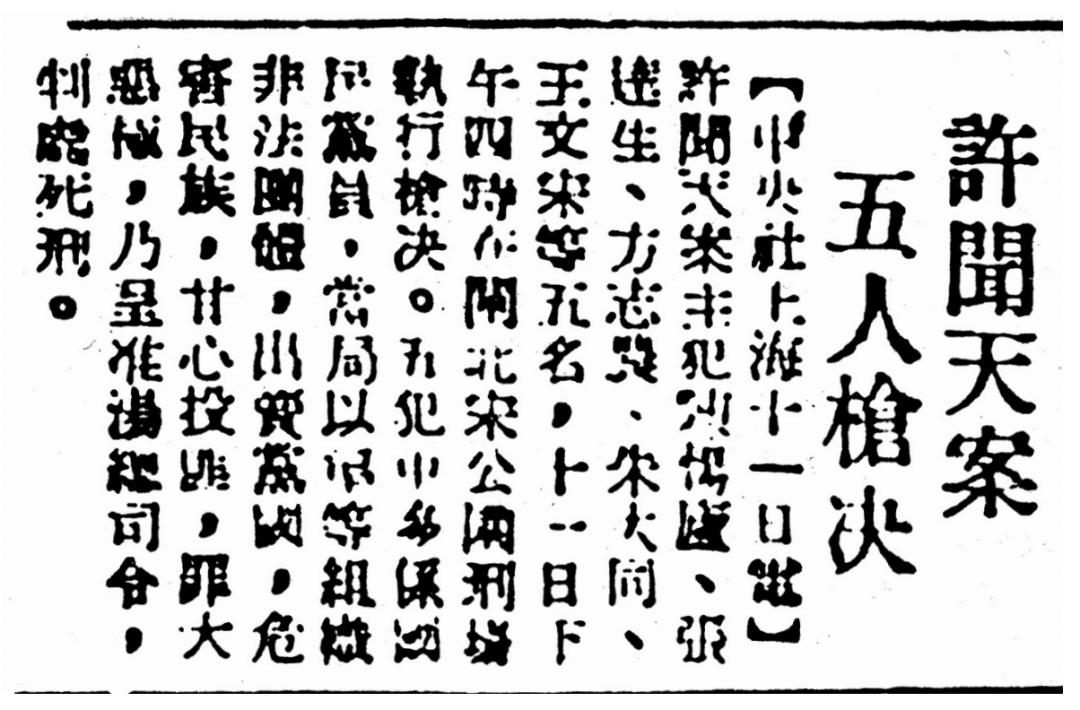 許聞天案
五人槍決
【中央社上海十一日電】
許聞天案主犯、張
達生、方志農、朱大同、
王文宗等五名，十一日下
午四時在閘北宋公園刑場
執行槍决。五犯中多係國
民黨員，當局以等組織
非法團體，出賣黨國，危
害民族，甘心投匪，罪大
惡極，乃呈准湯總司令，
判處死刑。